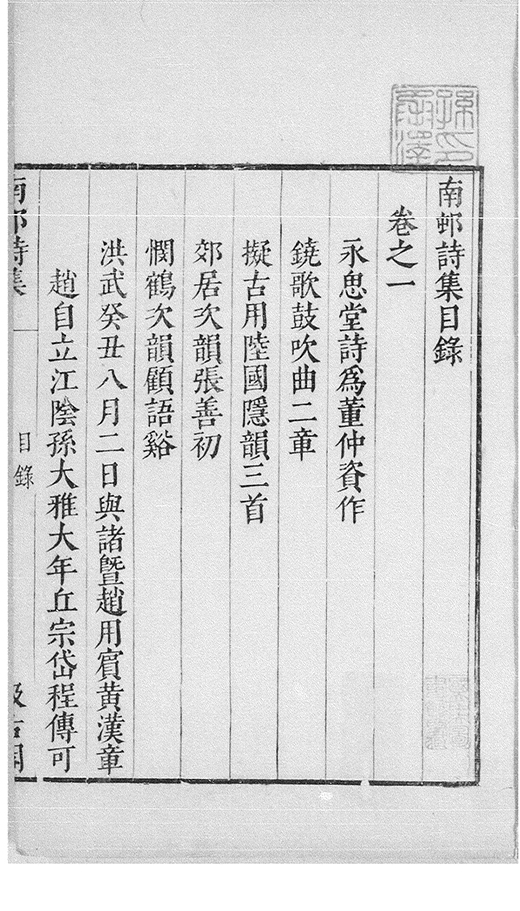 南邨詩集目錄
卷之一
永思堂詩爲董仲資作
鐃歌鼓吹曲二章
擬古用陸國隱韻三首
郊居次韻張善初
憫鶴次韻顧語谿
洪武癸丑八月二日與諸曁趙用賓黃漢章
趙自立江陰孫大雅大年丘宗岱程傳可
南邨詩集
目錄
汲古閣